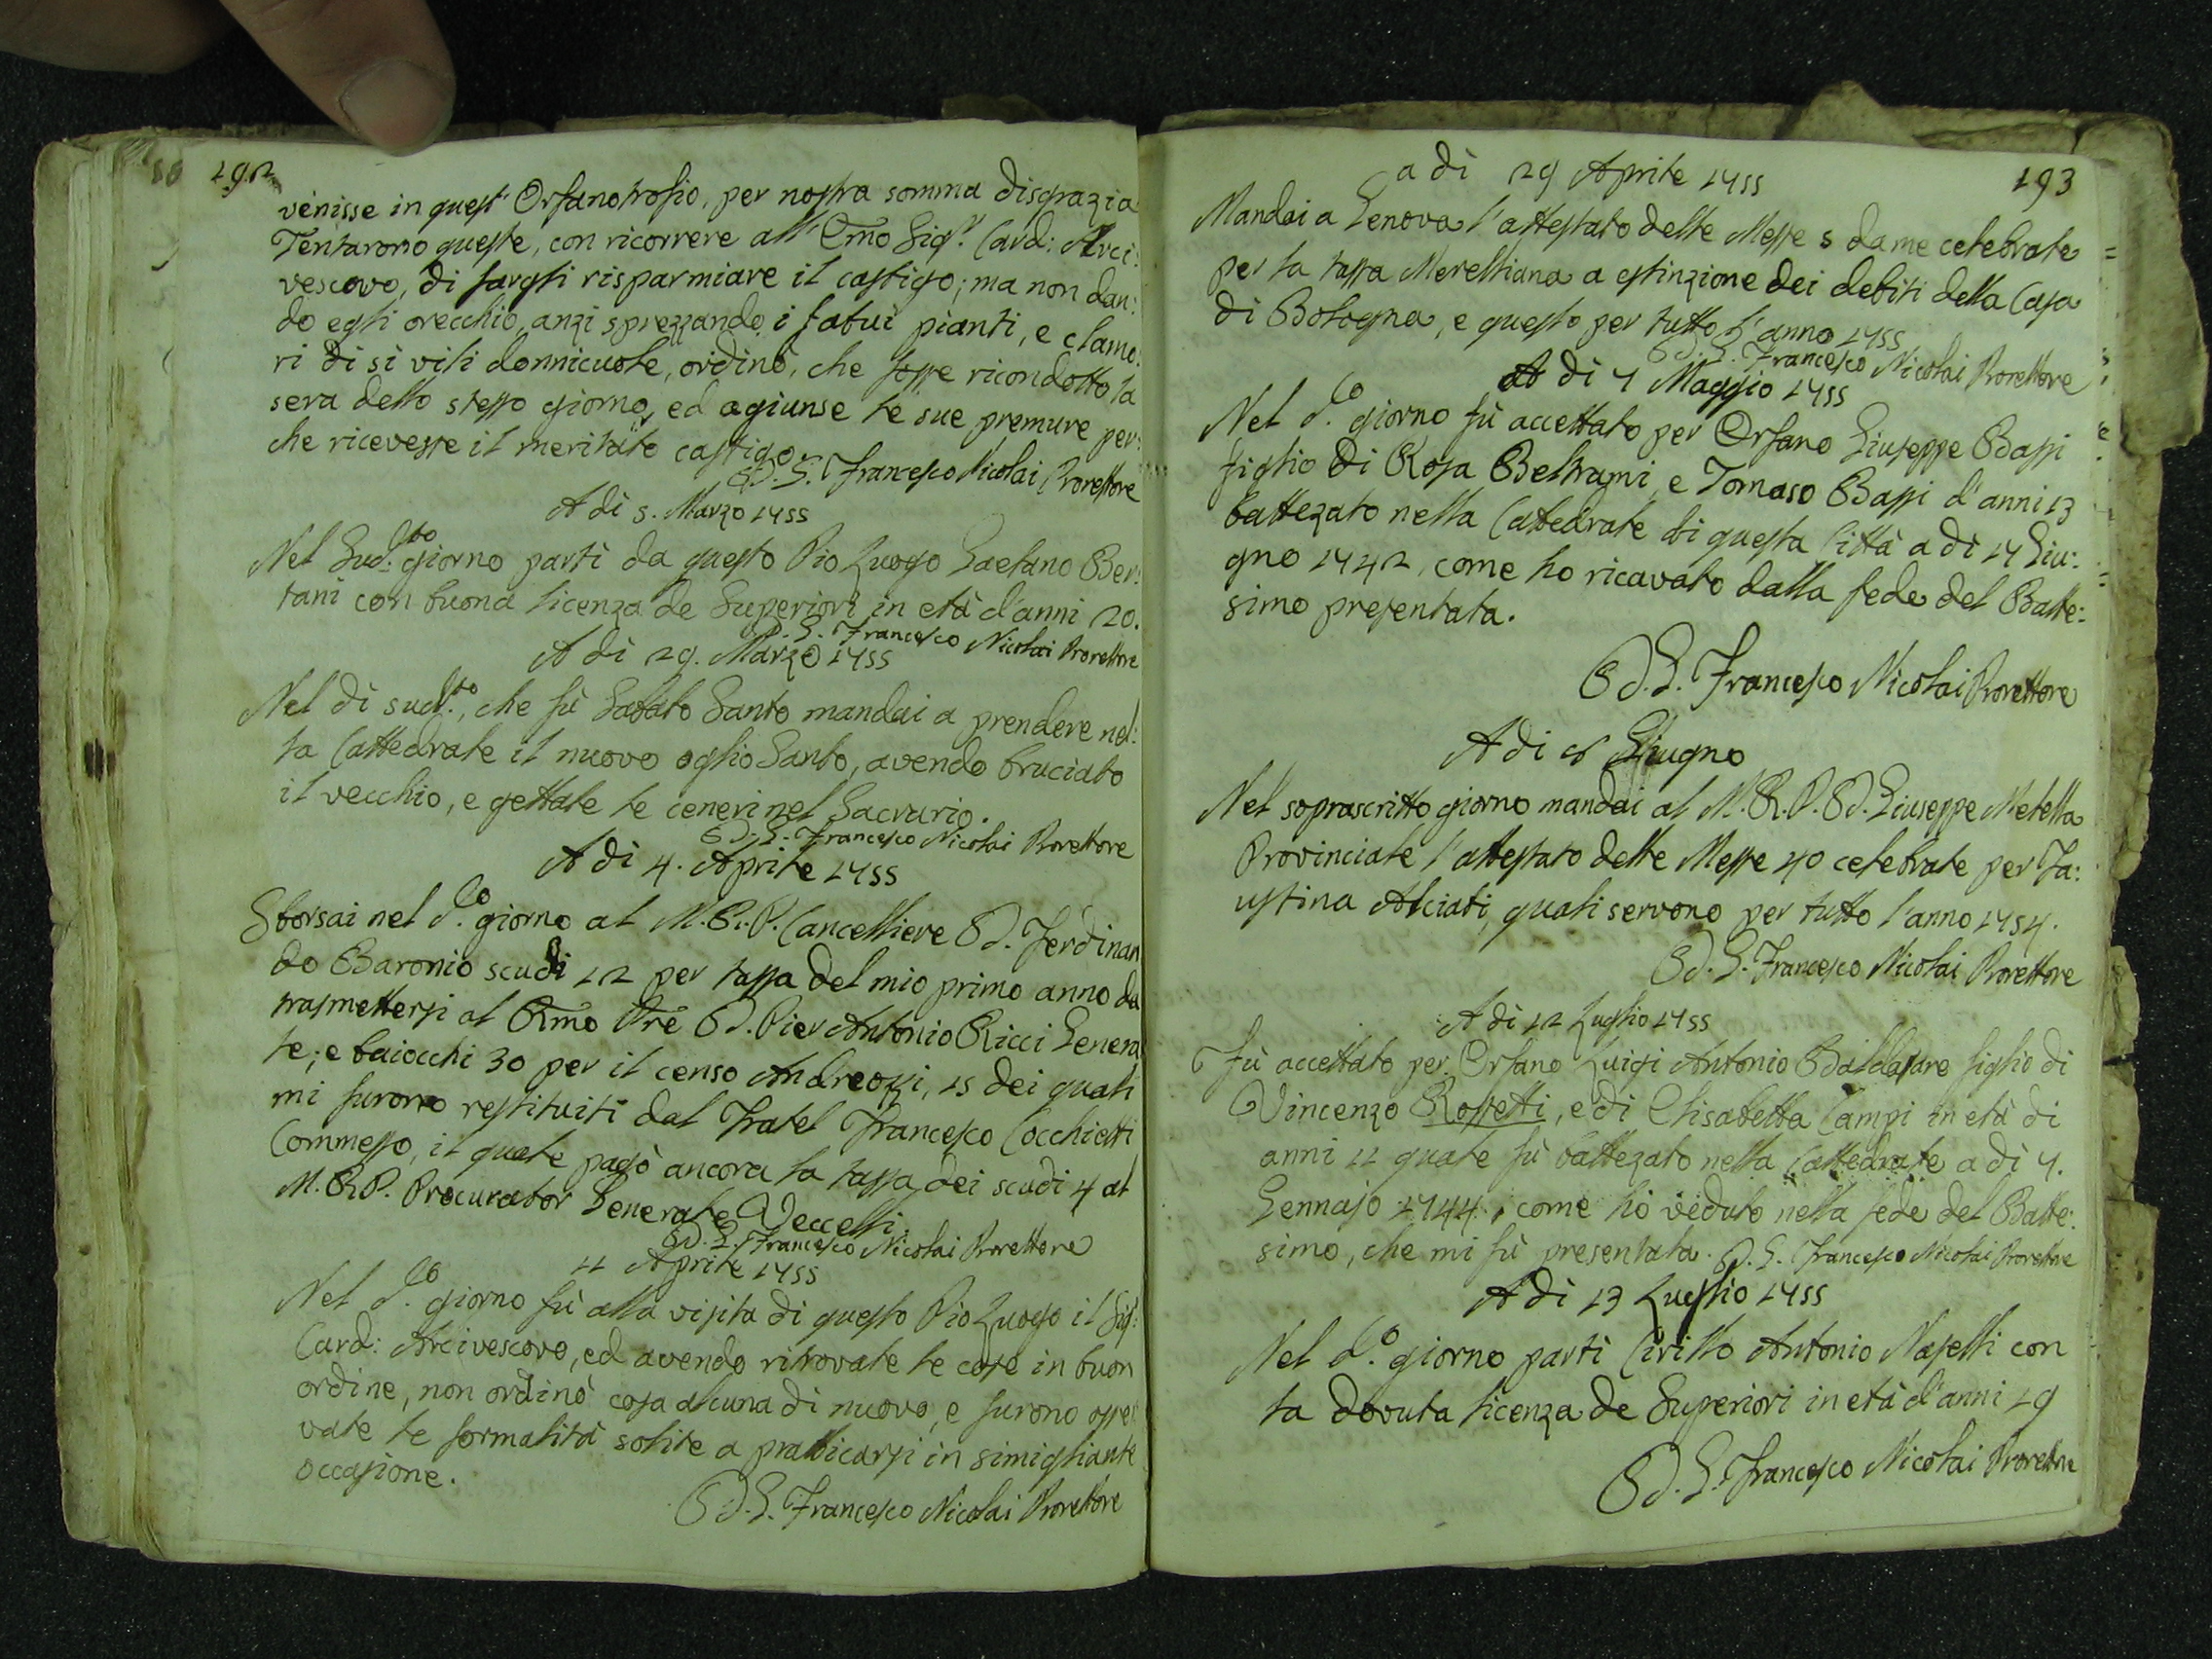 192
venisse in quest' Orfanotrofio, per nostra somma disgrazia
Tentarono queste, con ricorrere all' Emo Sigr. Card: Arci:
vescovo, di fargli risparmiare il castigo; ma non dan:
do egli orecchio, anzi sprezzando i fatui pianti, e clamo:
ri di sì vili donnicuole, ordinò, che fosse ricondotto la
sera dello stesso giorno, ed agiunse le sue premure per:
che ricevesse il meritato castigo.
D. G. Francesco Nicolai Prorettore
A dì 5. Marzo 1755
Nel Sud.to giorno partì da questo Pio Luogo Gaetano Ber:
tani con buona licenza de Superiori in età d'anni 20.
D. G. Francesco Nicolai Prorettore
A dì 29. Marzo 1755
Nel dì sud.to, che fù Sabato Santo mandai a prendere nel:
la Cattedrale il nuovo oglio Santo, avendo bruciato
il vecchio, e gettate le ceneri nel Sacrario.
D. G. Francesco Nicolai Prorettore
A dì 4. Aprile 1755
Sborsai nel d.o giorno al M. R. P. Cancelliere D. Ferdinan
do Baronio scudi 12 per tassa del mio primo anno da
trasmettersi al Rmo Pre D. Pier Antonio Ricci Genera
le; e baiocchi 30 per il censo Andreozzi, 15 dei quali
mi furono restituiti dal Fratel Francesco Cocchietti
Commesso, il quale pagò ancora la tassa dei scudi 4 al
M. R. P. Procurator Generale Veccelli.
D. G. Francesco Nicolai Prorettore
11 Aprile 1755
Nel d.o giorno fù alla visita di questo Pio Luogo il Sig:
Card: Arcivescovo, ed avendo ritrovate le cose in buon
ordine, non ordinò cosa alcuna di nuovo, e furono osser
vate le formalità solite a pratticarsi in simigliante
occasione.
D. G. Francesco Nicolai Prorettore
193
a dì 29 Aprile 1755
Mandai a Genova l'attestato delle Messe 5 da me celebrate
per la tassa Merelliana a estinzione dei debiti della Casa
di Bologna, e questo per tutto l'anno 1755
D. G. Francesco Nicolai Prorettore
A dì 7 Maggio 1755
Nel d.o giorno fù accettato per Orfano Giuseppe Bassi
figlio di Rosa Beltrami, e Tomaso Bassi d'anni 13
battezato nella Cattedrale di questa Città a dì 17 Giu:
gno 1742, come ho ricavato dalla fede del Batte:
simo presentata.
D. G. Francesco Nicolai Prorettore
A dì Giugno
Nel soprascritto giorno mandai al M. R. P. D. Giuseppe Metella
Provinciale l'attestato delle Messe 40 celebrate per Fa:
ustina Alciati, quali servono per tutto l'anno 1754.
D. G. Francesco Nicolai Prorettore
A dì 12 Luglio 1755
Fù accettato per Orfano Luigi Antonio Baldasare figlio di
Vincenzo Rossetti, e di Elisabetta Campi in età di
anni 11 quale fù battezato nella Cattedrale a dì 7.
Gennajo 1744, come hò veduto nella fede del Batte:
simo, che mi fù presentata. D. G. Francesco Nicolai Prorettore
A dì 13 Luglio 1755
Nel d.o giorno partì Cirillo Antonio Naselli con
la dovuta licenza de Superiori in età d'anni 19
D. G. Francesco Nicolai Prorettore